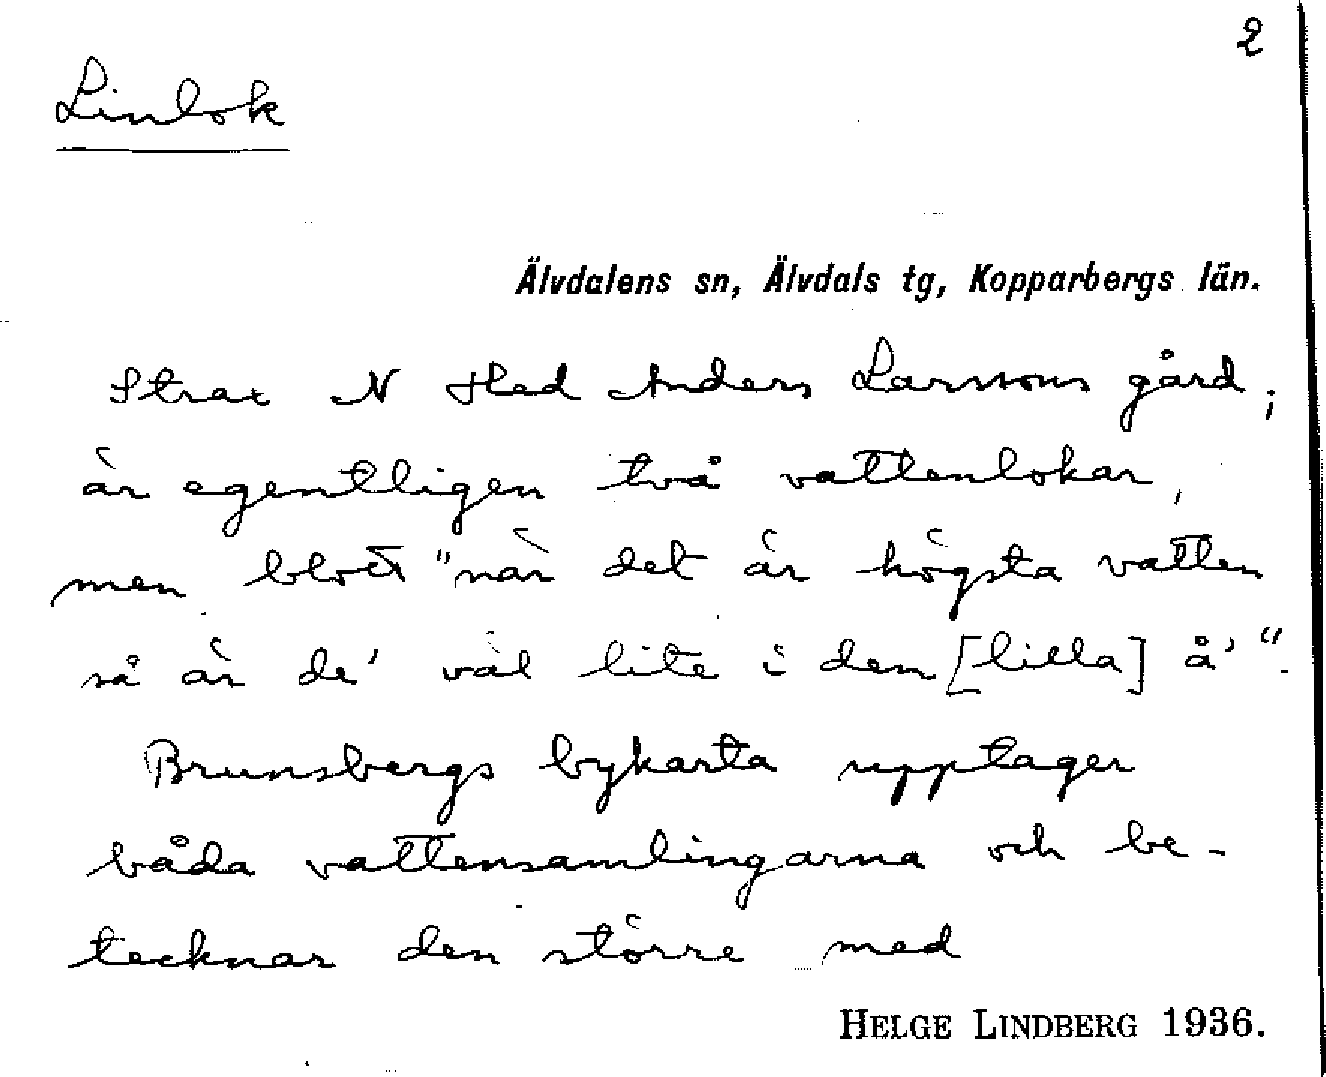 2
Linlok
Älvdalens sn, Älvdals tg, Kopparbergs län.
Strax N Hed Anders Larssons gård;
är egentligen två vattenlokar,
men blott "när det är högsta vatten
så är de' väl lite i dem [lilla] å'".
Brunsbergs bykarta upptager
båda vattensamlingarna och be-
tecknar den större med
HELGE LINDBERG 1936.